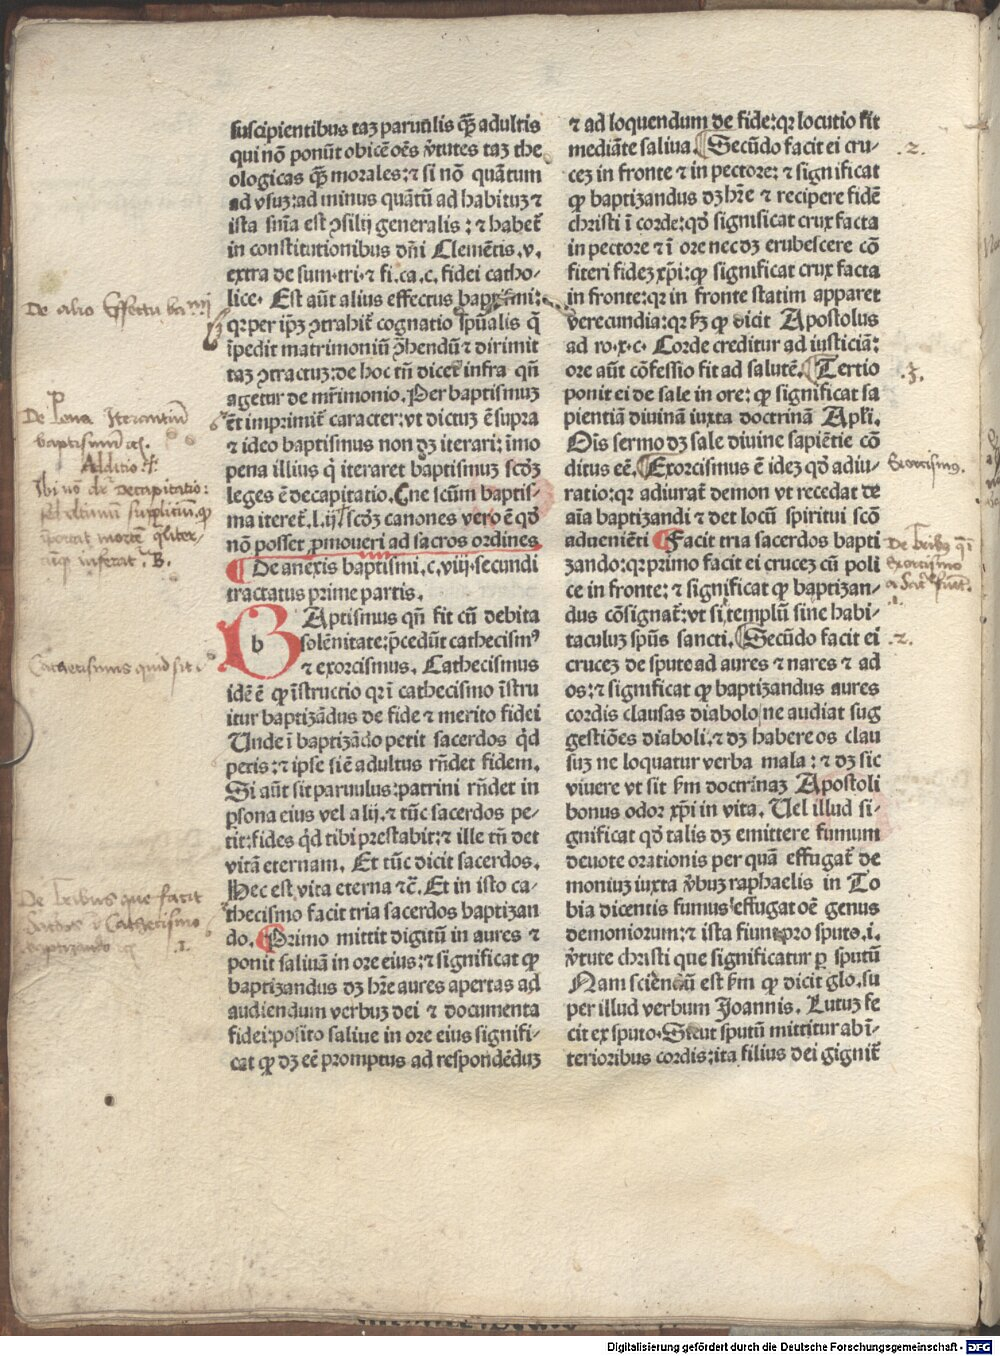 suscipientibus taꝫ paruulis q̃ꝫ adultis
qui nõ ponũt obicẽ oẽs ꝟtutes taꝫ the
ologicas q̃ꝫ morales: ⁊ si nõ quãtum
ad vsuꝫ: ad minus quãtũ ad habituꝫ ⁊
ista sn̄ia est ꝯsilij generalis: ⁊ habet̃
in constitutionibus dñi Clemẽtis. v.
extra de sum. tri. ⁊ fi. ca. c. fidei catho-
lice. Est aũt alius effectus baptismi:
qꝛ per ip̃ꝫ ꝯtrahit̃ cognatio sp̃ualis q̃
ĩpedit matrimoniũ ꝯ̃hendũ ⁊ dirimit
taꝫ ꝯtractuꝫ: de hoc tñ dicet̃ infra qñ
agetur de mr̃imonio. Per baptismuꝫ
ẽt imprimit̃ caracter: vt dictuꝫ ẽ supra
⁊ ideo baptismus non dꝫ iterari: ĩmo
pena illius q̃ iteraret baptismuꝫ scd̃ꝫ
leges ẽ decapitatio. C ne scũm baptis-
ma iteret̃. l. ij. scd̃ꝫ canones vero ẽ qd̃
nõ posset ꝓmoueri ad sacros ordines
De anexis baptismi. c. viij. secundi
tractatus prime partis.
BAptismus qñ fit cũ debita
b
solẽnitate: p̃cedũt cathecismꝰ
⁊ exorcismus. Cathecismus
idẽ ẽ ꝙ ĩstructio qꝛ ĩ cathecismo ĩstru
itur baptizãdus de fide ⁊ merito fidei
Unde ĩ baptizãdo petit sacerdos q̃d
petis: ⁊ ipse si ẽ adultus rñdet fidem.
Si aũt sit paruulus: patrini rñdet in
ꝑsona eius vel alij. ⁊ tũc sacerdos pe-
tit: fides q̃d tibi prestabit: ⁊ ille tñ det
vitã eternam. Et tũc dicit sacerdos.
Hec est vita eterna ⁊c̃. Et in isto ca-
thecismo facit tria sacerdos baptizan
do. Primo mittit digitũ in aures ⁊
ponit saliuã in ore eius: ⁊ significat ꝙ
baptizandus dꝫ hr̃e aures apertas ad
audiendum verbuꝫ dei ⁊ documenta
fidei: posito saliue in ore eius signifi-
cat ꝙ dꝫ eẽ promptus ad respondẽduꝫ
⁊ ad loquendum de fide: qꝛ locutio fit
mediãte saliua. Secũdo facit ei cru-
ceꝫ in fronte ⁊ in pectore: ⁊ significat
ꝙ baptizandus dꝫ hr̃e ⁊ recipere fidẽ
christi ĩ corde: qd̃ significat crux facta
in pectore ⁊ ĩ ore nec dꝫ erubescere cõ
fiteri fideꝫ xp̃i: ꝙ significat crux facta
in fronte: qꝛ in fronte statim apparet
verecundia: qꝛ ẜꝫ ꝙ dicit Apostolus
ad ro. x. c. Corde creditur ad iusticiã:
ore aũt cõfessio fit ad salutẽ. Tertio
ponit ei de sale in ore: ꝙ significat sa
pientiã diuinã iuxta doctrinã Apl̃i.
Oĩs sermo dꝫ sale diuine sapiẽtie cõ
ditus eẽ. Exorcismus ẽ ideꝫ qd̃ adiu-
ratio: qꝛ adiurat̃ demon vt recedat de
aĩa baptizandi ⁊ det locũ spiritui scõ
adueniẽti Facit tria sacerdos bapti
zando: qꝛ primo facit ei cruceꝫ cũ poli
ce in fronte: ⁊ significat ꝙ baptizan-
dus cõsignat̃: vt sit templũ sine habi-
taculuꝫ spũs sancti. Secũdo facit ei
cruceꝫ de spute ad aures ⁊ nares ⁊ ad
os: ⁊ significat ꝙ baptizandus aures
cordis clausas diabolo ne audiat sug
gestiões diaboli. ⁊ dꝫ habere os clau
suꝫ ne loquatur verba mala: ⁊ dꝫ sic
viuere vt sit ẜm doctrinaꝫ Apostoli
bonus odor xp̃i in vita. Uel illud si-
gnificat qd̃ talis dꝫ emittere fumum
deuote orationis per quã effugat̃ de
moniuꝫ iuxta ꝟbuꝫ raphaelis in To
bia dicentis fumus effugat oẽ genus
demoniorum: ⁊ ista fiunt pro sputo. i.
ꝟtute christi que significatur ꝑ sputũ
Nam sciendũ est ẜm ꝙ dicit glo. su
per illud verbum Joannis. Lutuꝫ fe
cit ex sputo. Sicut sputũ mittitur ab ĩ-
terioribus cordis: ita filius dei gignit̃
De alio Effectu
De Pena Iterantiũ
baptismum
Additio
De tribus que facit
.1.
.2.
.3.
Exorcismus.
.1.
.2.
Digitalisierung gefördert durch die Deutsche Forschungsgemeinschaft - DFG